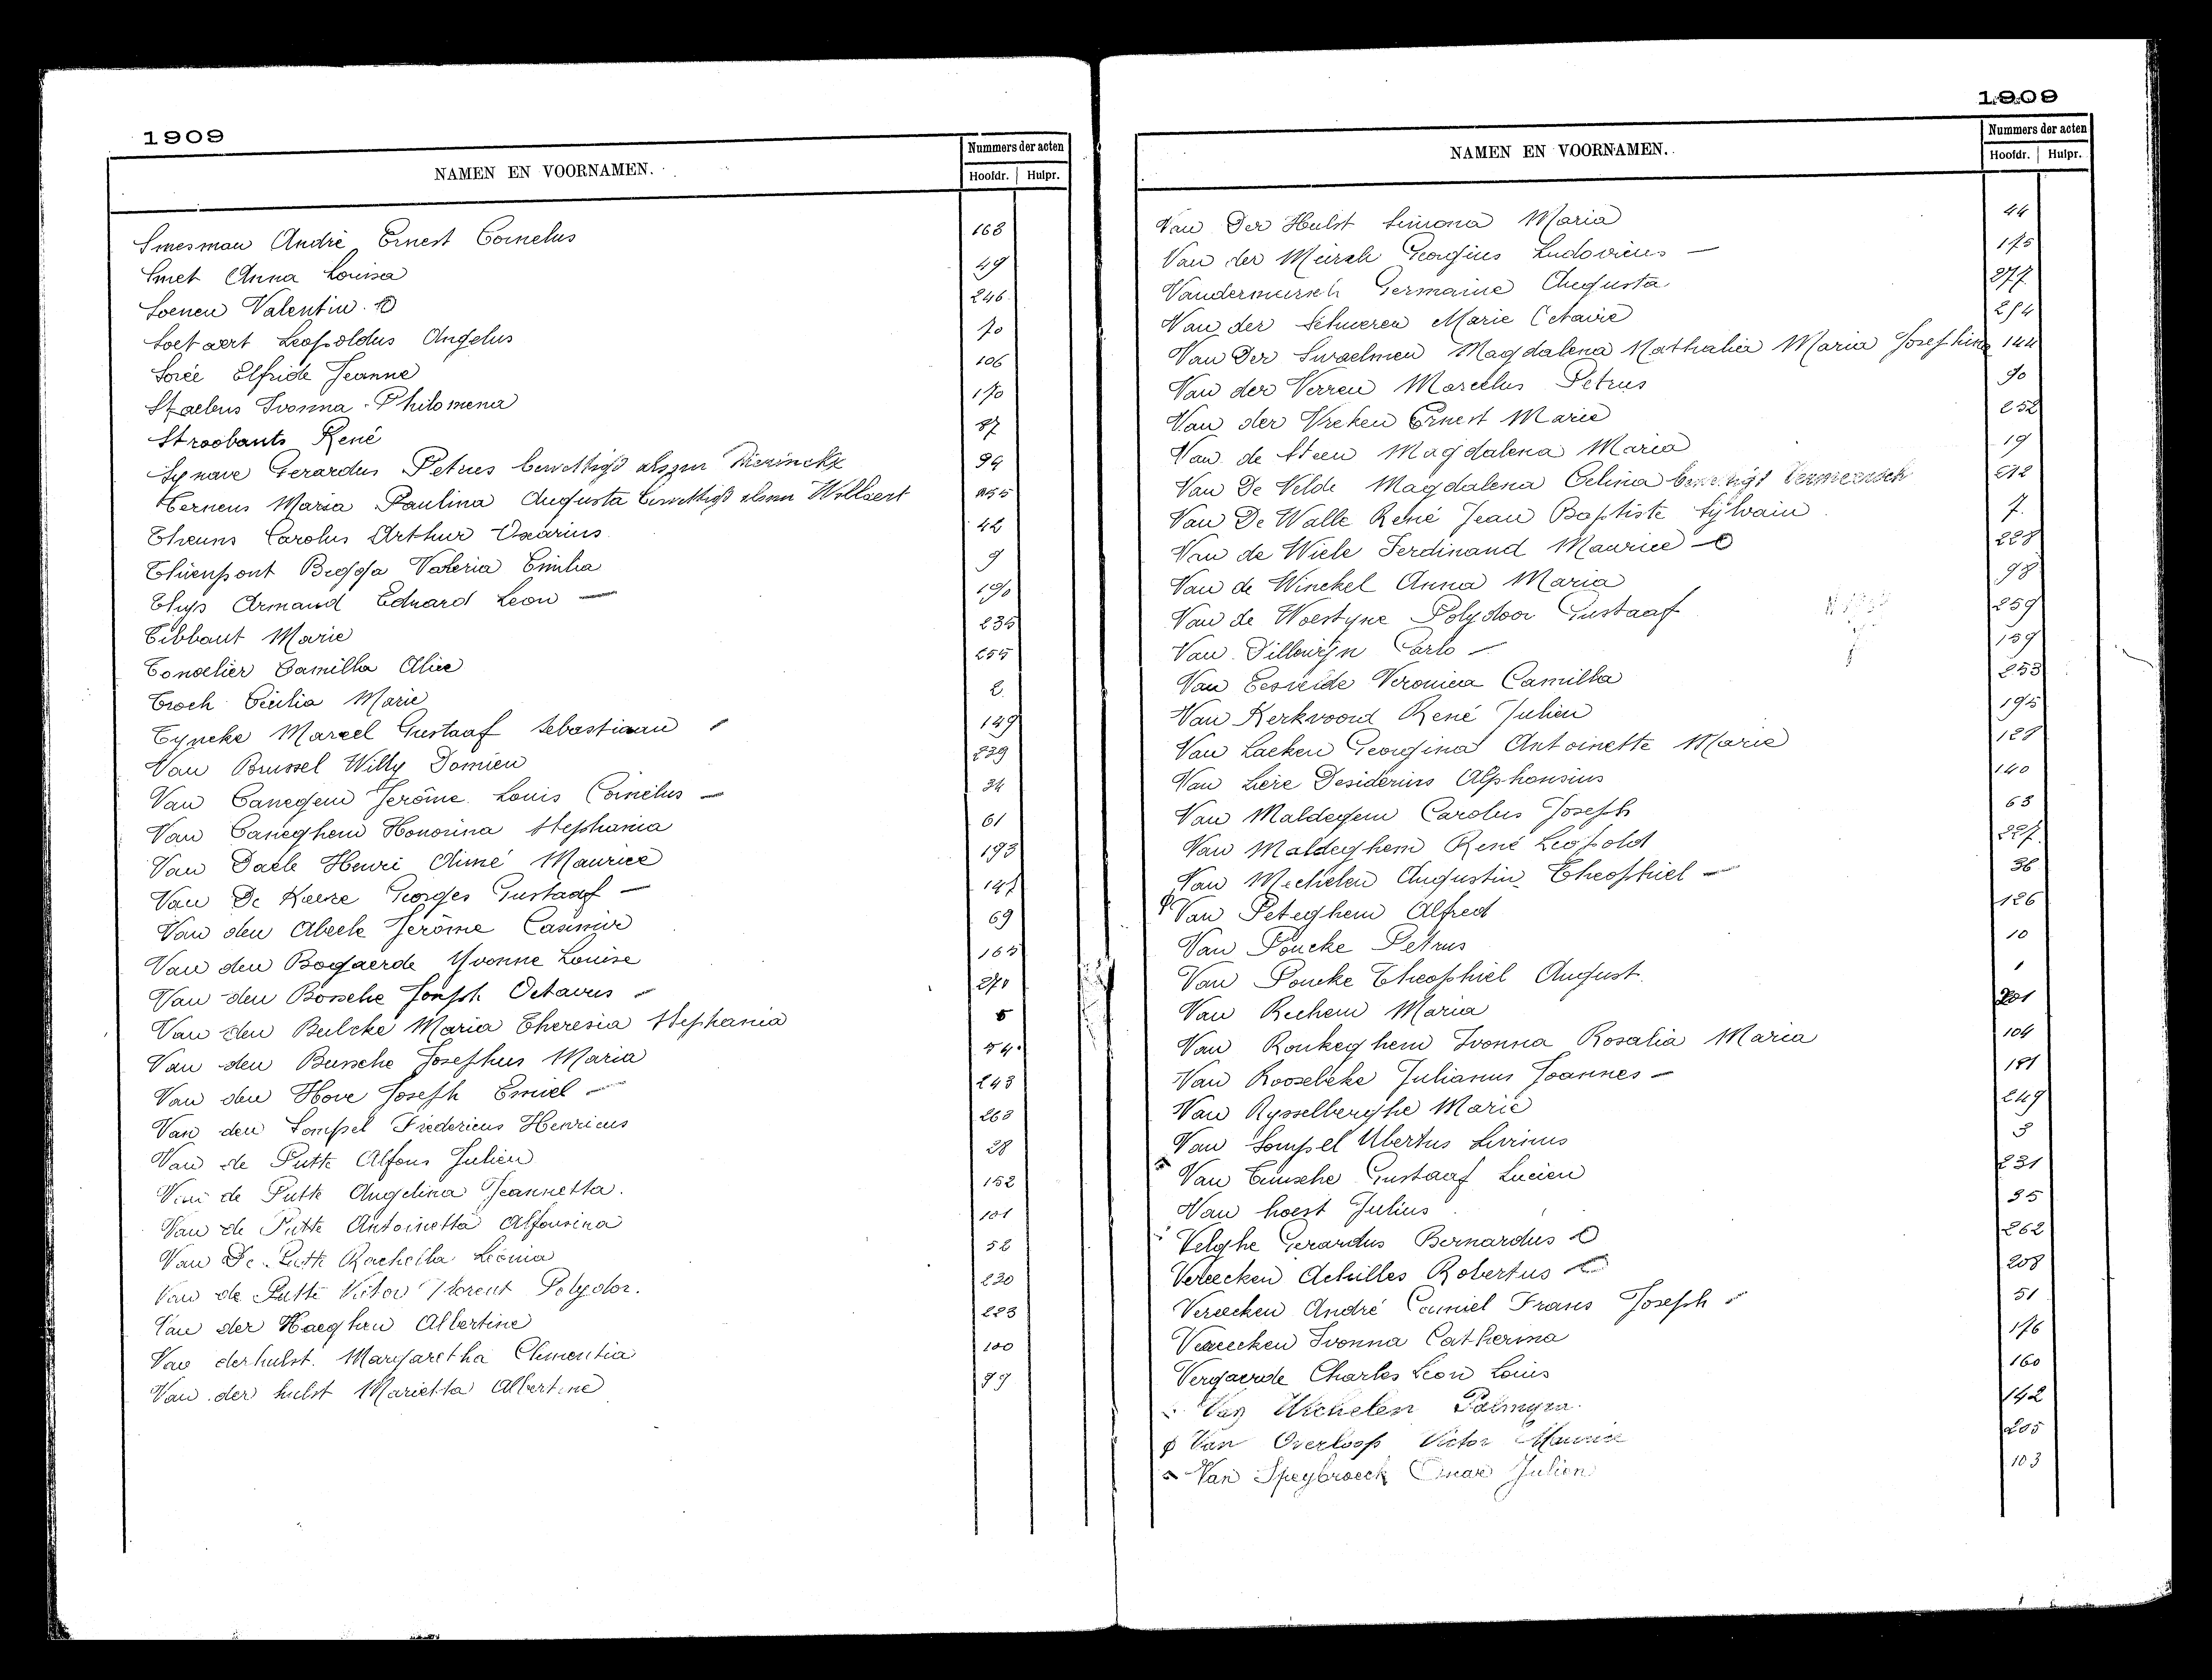 1909
NAMEN EN VOORNAMEN.
Nummers der acten
Hoofdr. Hulpr.
Smesman André Ernest Cornelus 163
Smet Anna Louisa 49
Soenen Valentin 246
Soetaert Leopoldus Angelus 70
Sorée Elfride Jeanne 106
Staelens Ivonna Philomena 170
Stroobants René 87
Synave Gerardus Petrus bewettigd als zijn Dierinckx 94
Ternens Maria Paulina Augusta bewettigd Willaert 255
Theuns Carolus Arthur Oscarius 42
Thienpont Valeria Emilia 9
Thys Armand Eduard Leon 190
Tibbaut Marie 235
Tonselier Camilla Alice 255
Troch Cécilia Marie 2
Tyncke Marcel Gustaaf Sebastiaan 149
Van Brussel Willy Domien 239
Van Canegem Jerôme Louis Cornelus 34
Van Caneghem Honorina Stephania 61
Van Daele Henri Aimé Maurice 193
Van De Keere Georges Gustaaf 147
Van den Abeele Jerôme Casimir 69
Van den Bogaerde Yvonne Louise 165
Van den Bossche Joseph Octavus 270
Van den Bulcke Maria Theresia Stephania 5
Van den Bussche Josephus Maria 54
Van den Hove Joseph Emiel 243
Van den Sompel Fredericus Henricus 263
Van de Putte Alfons Julien 28
Van de Putte Angelina Jeannetta. 152
Van de Putte Antoinetta Alfonsina 101
Van De Putte Rachella Léonia 52
Van de Putte Victor Florent Polydor. 230
Van der Haeghen Albertine 223
Van derhulst. Margaretha Clementia 100
Van der hulst Marietta Albertine 99
1909
NAMEN EN VOORNAMEN.
Nummers der acten
Hoofdr. Hulpr.
Van Der Hulst Simona Maria 44
Van der Meirsch Georgius Ludovicus 175
Vandermeirsch Germaine Augusta 277
Van der Schueren Marie Octavie 254
Van Der Swaelmen Magdalena Nathalia Maria Josephina 144
Van der Verren Marcelus Petrus 90
Van der Vreken Ernest Marie 252
Van de Steen Magdalena Maria 19
Van De Velde Magdalena Celina Vermeersch 212
Van De Walle René Jean Baptiste Sylvain 7
Van de Wiele Ferdinand Maurice 228
Van de Winckel Anna Maria 98
Van de Woestyne Polydoor Gustaaf 259
Van Dillewijn Carlo 159
Van Eesvelde Veronica Camilla 253
Van Kerkvoord René Julien 195
Van Laeken Georgina Antoinette Marie 129
Van Liere Desiderius Alphonsius 140
Van Maldegem Carolus Joseph 63
Van Maldeghem René Leopold 227
Van Mechelen Augustin Theophiel 36
Van Peteghem Alfred 126
Van Poucke Petrus 10
Van Poucke Theophiel August. 1
Van Rechem Maria 201
Van Ronkeghem Ivonna Rosalia Maria 104
Van Roosebeke Julianus Joannes 181
Van Rysselberghe Marie 249
Van Sompel Ubertus Livinus 3
Van Tenische Gustaaf Lucien 231
Van hoest Julius 35
Velghe Gerardus Bernardus 262
Vereecken Achilles Robertus 208
Vereecken André Camiel Frans Joseph 51
Vereecken Ivonna Catherina 176
Vergaerde Charles Léon Louis 160
Van Michelen Palmyra. 142
Van Overloop Victor Maurice 205
Van Speybroeck Omar Julien 103